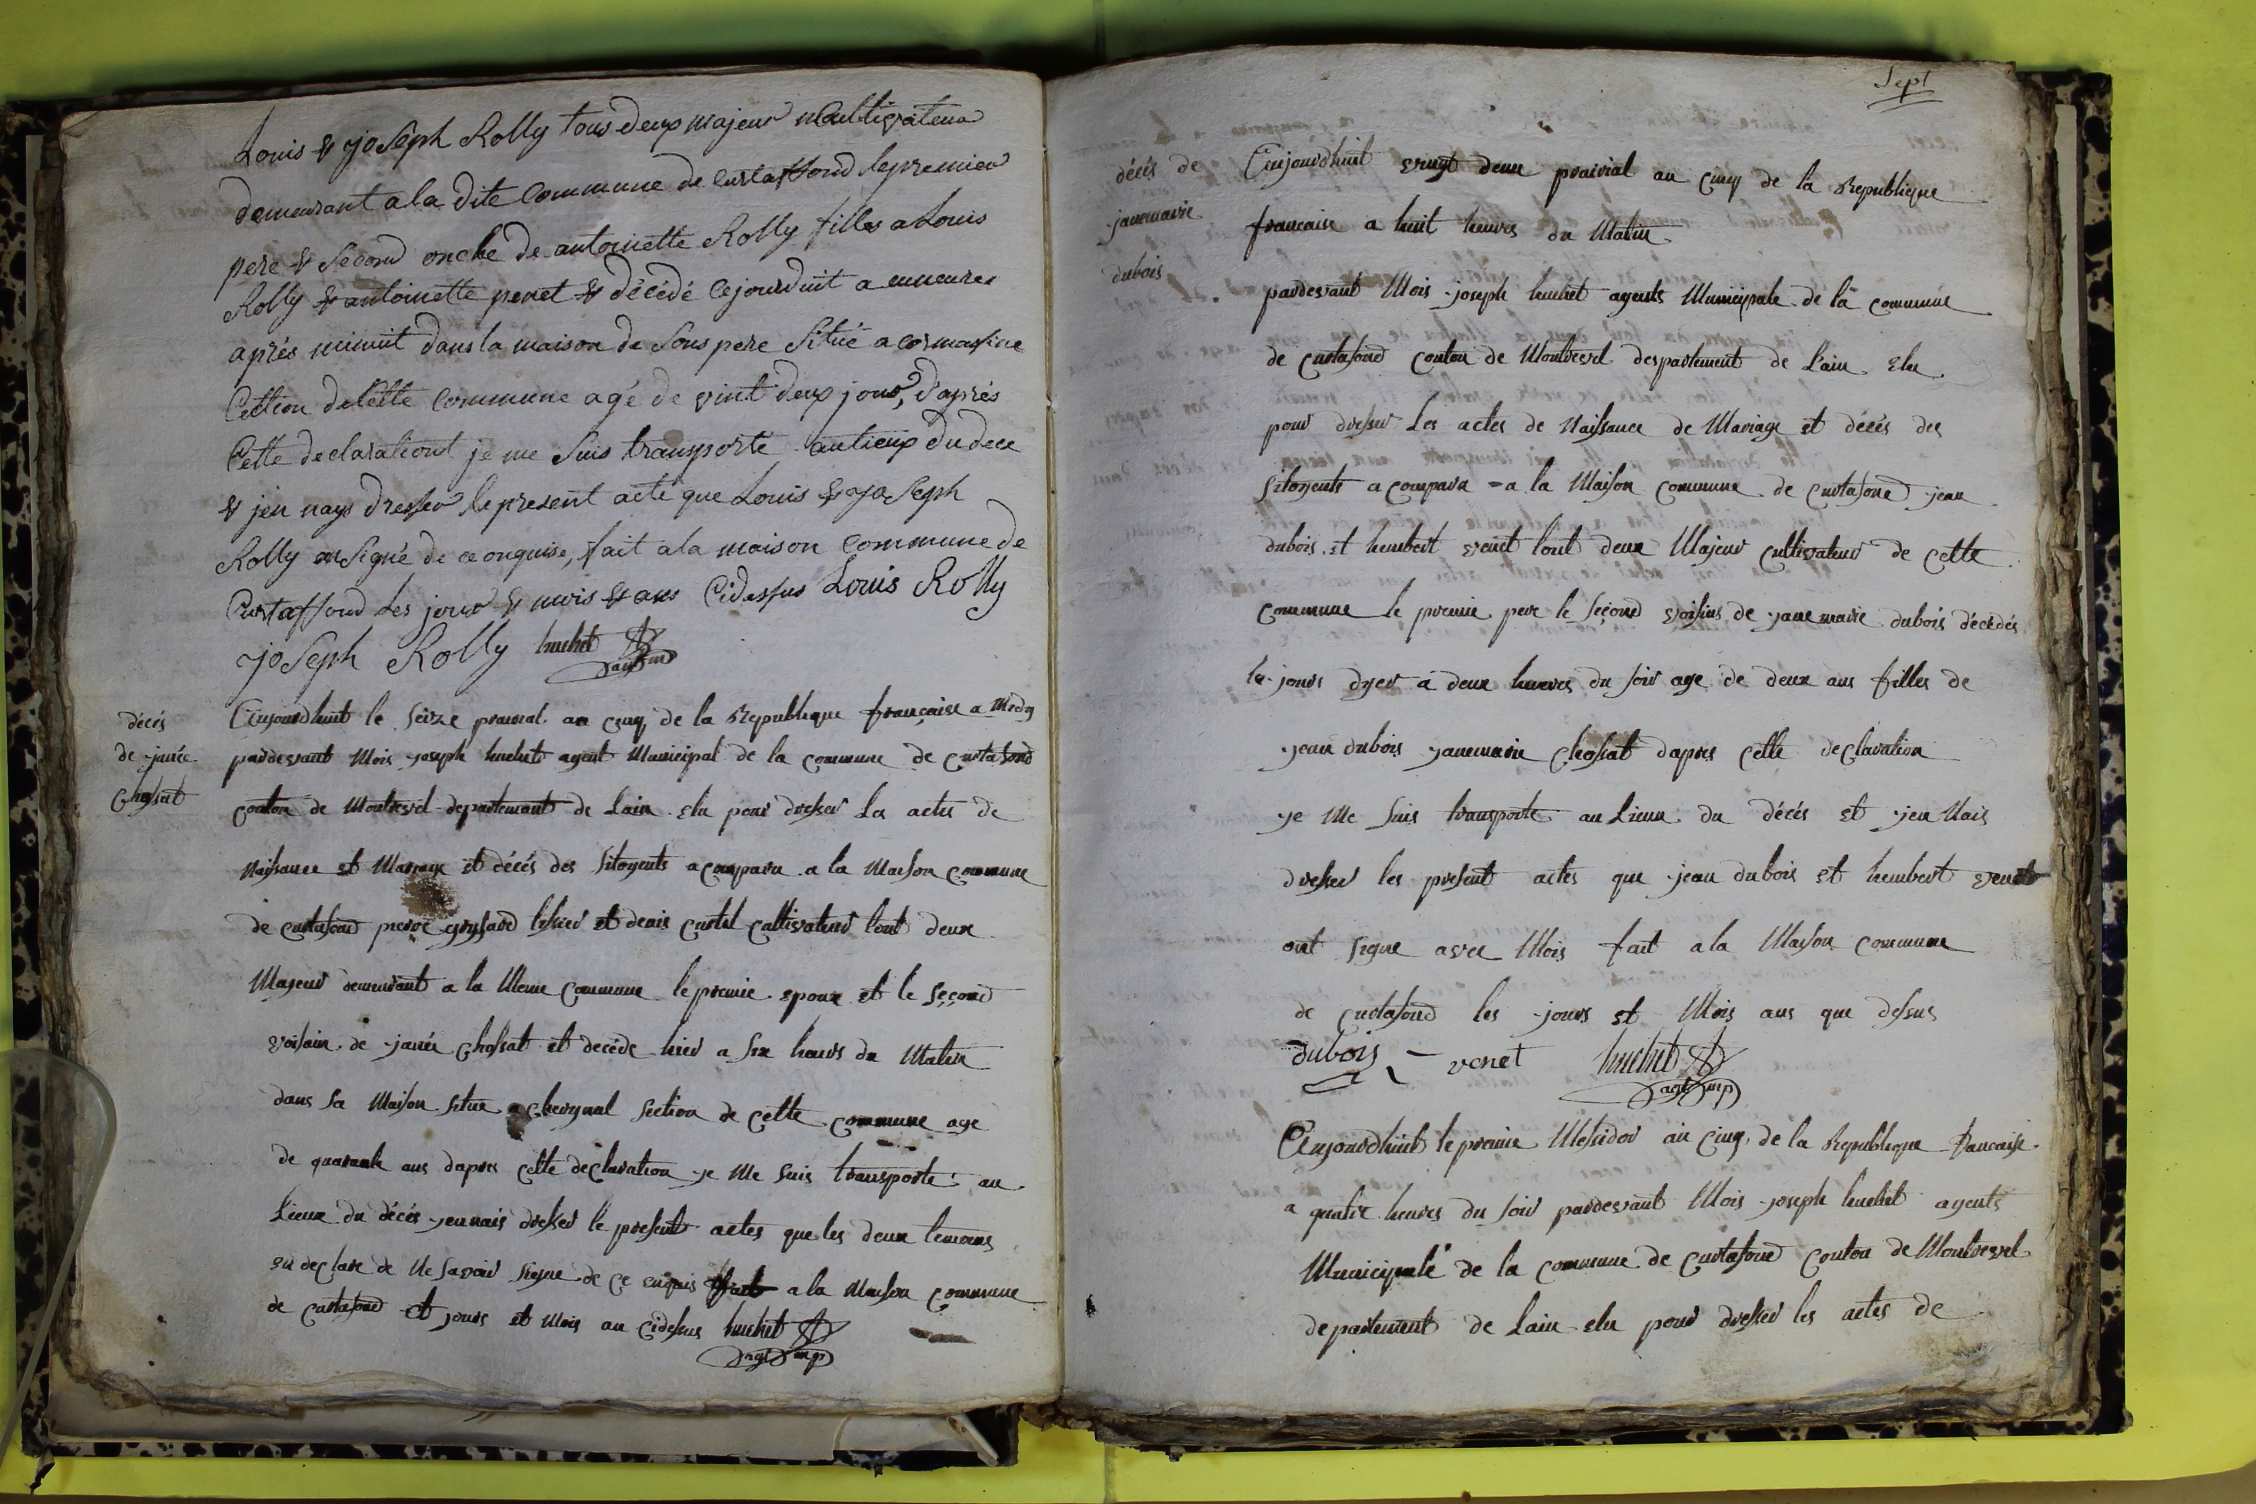 Louis & joseph Rolly tous deux majeur cultivateur
demeurant a la dite commune de curtaffond le premier
pere & second oncle de antoinette Rolly filles a Louis
Rolly & antoinette penet & décédé cejourduit a euneures
aprés minuit dans la maison de sous pere situé a cormasine
cettion de cette commune agé de vint deux jour, d'aprés
cette declarationt je me suis transporté au lieux du dece
& jen nays dresser le present acte que Louis & joseph
Rolly on signé de ce onquise, fait a la maison commune de
Curtaffond les jour & mois & ans cidessus Louis Rolly
joseph Rolly huchet
agt mp
décés
de janée
Chossat
Aujourdhuit le seize prairial an cinq de la Republique française a Midy
pardevant Mois joseph huchet agent Municipal de la commune de curtafond
conton de Montrevel departement de Lain elu pour dresser La actes de
Naissance et Mariage et décés des sitoyents a comparu a la Maison commune
de curtafond pierre tissier et denis curtil cultivateur tout deux
Majeur demeurant a la Meme commune le premie epoux et le second
voisain de janée chossat et decéde hier a six heurs du Matin
dans sa Maison situe a chevrynal section de cette commune age
de quarante ans dapres cette declaration je Me suis transporte au
Lieux du décés jen nais dresser le present actes que les deux temoins
on declare de Ne savoir signe de ce enquis fait a la Maison commune
de curtafond et jours et Mois an cidessus huchet
agt mp
Sept
décés de
janemarie
dubois
Aujourdhuit vingt deux prairial an cinq de la Republique
francaise a huit heures du Matin
pardevant Mois joseph huchet agents Municipale de la commune
de curtafond conton de Montrevel despartement de Lain Elu
pour dresser Les actes de Naissance de Mariage et décés des
sitoyents a comparu a la Maison commune de curtafond jean
dubois et humbert venet tout deux Majeur cultivateur de cette
commune le premie pere le second voisins de jane marie dubois décedés
le jours dyer a deux heures du soir age de deux ans filles de
jean dubois janemarie Chossat dapres cette declaration
je Me suis transporte au Lieux du décés et jen Nais
dresser les present actes que jean dubois et humbert venet
ont signe avec Mois fait a la Maison commune
de curtafond les jours et Mois ans que dessus
dubois venet huchet
agt mp
Aujourdhuit le premie Messidor an cinq de la Republique francaise
a quatre heures du soir pardevant Mois joseph huchet agents
Municipale de la commune de curtafond conton de Montrevel
departement de Lain elu pour dresser les actes de